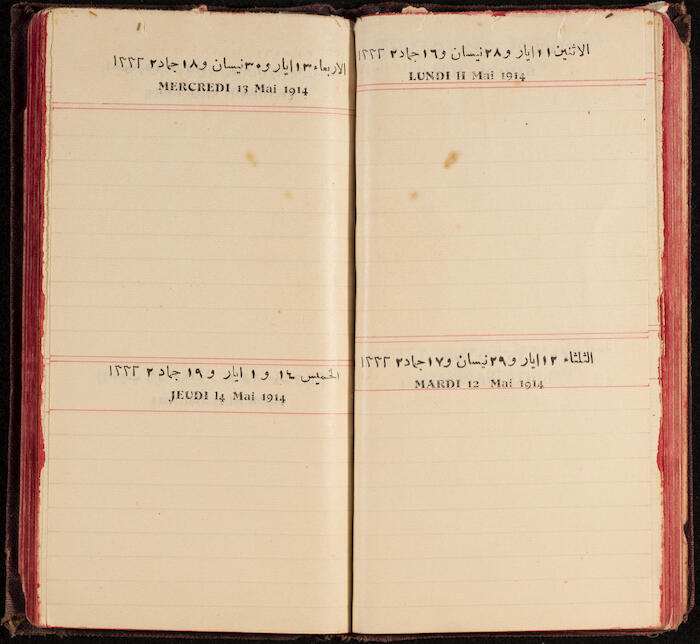 الاثنين ١١ ايار و ٢٨ نيسان و ١٦ جماد ٢ ١٣٣٢
LUNDI 11 Mai 1914
الثلثاء ١٢ ايار و ٢٩ نيسان و ١٧ جماد ٢ ١٣٣٢
MARDI 12 Mai 1914
الاربعاء ١٣ ايار و ٣٠ نيسان و ١٨ جماد ٢ ١٣٣٢
MERCREDI 13 Mai 1914
الخميس ١٤ و ١ ايار و ١٩ جماد ٢ ١٣٣٢
JEUDI 14 Mai 1914